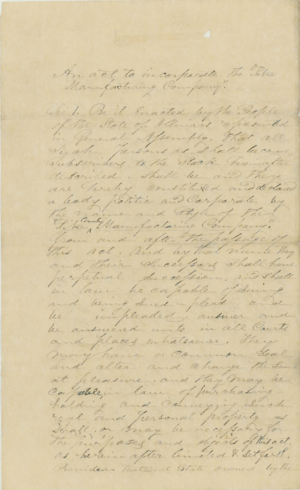 An act to incorporate the "Tubu
Manufacturing Company".
Sec 1. Be it Enacted by the People
of the State of Illinois represented
in General Assembly That all
such persons as shall become
subscribers to the Stock hereinafter
described shall be and they
are hereby constituted and declared
a body politic and corporate by
the name and style of the
Manufacturing Company"
from and after the passage of
this act. And by that name they
and their successors shall have
perpetual succession, and shall
in law be capable of suing
and being sued plead and
be impleaded, answer and
be answered unto in all Courts
and places whatsoever. They
may have a common Seal
and alter and change the same
at pleasure and they may be
capable in law of purchasing
holding and conveying such
real and personal property as
shall or may be necessary for
the purposes and objects of this act,
as herein after limited & set forth
real estate owned by the